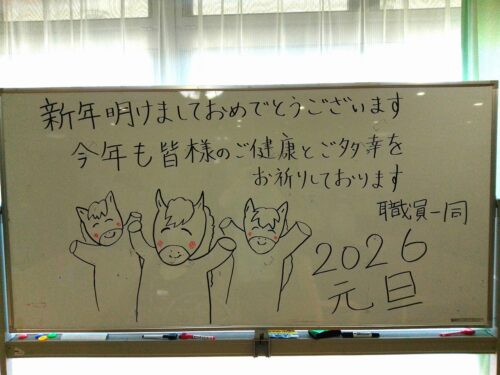 新年明けましておめでとうございます
今年も皆様のご健康とご多幸を
お祈りしております
職員一同
2026
元旦